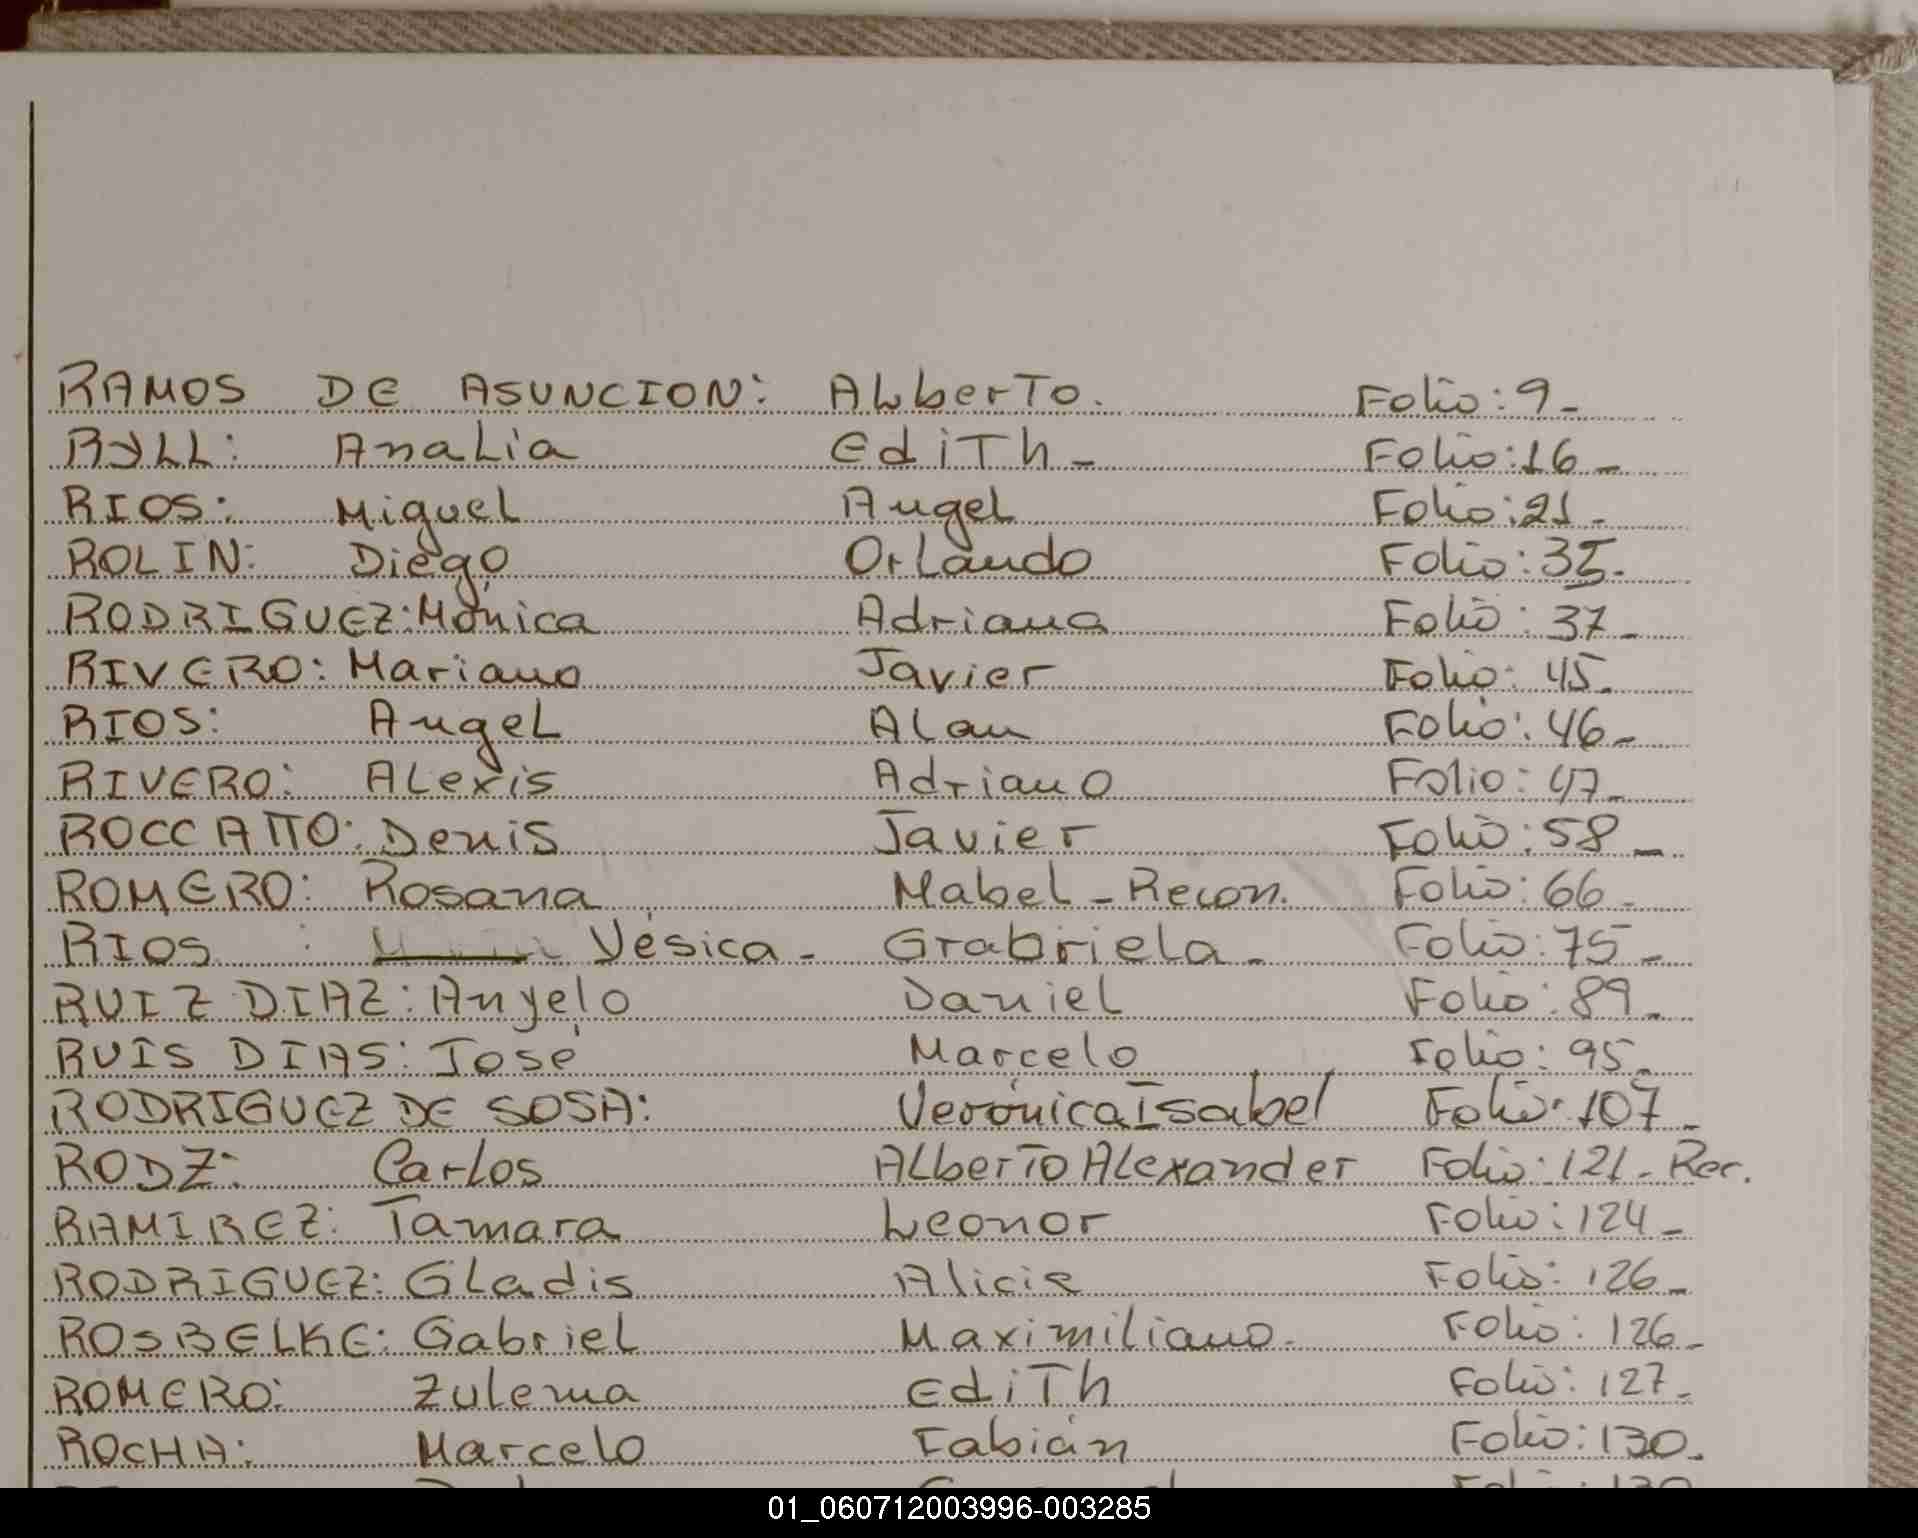 RAMOS DE ASUNCION: ALberTo. Folio: 9-
RYLL: AnaLia EdiTh- Folio: 16-
RIOS: MigueL AngeL Folio: 21-
ROLIN: Diego OrLando Folio: 35-
RODRIGUEZ: Mónica Adriana Folio: 37-
RIVERO: Mariano Javier Folio: 45-
RIOS: AngeL ALan Folio: 46-
RIVERO: ALexis Adriano Folio: 47-
ROCCATTO: Denis Javier Folio: 58-
ROMERO: Rosana Mabel-Recon. Folio: 66-
RIOS : Yésica- Grabriela- Folio: 75-
RUIZ DIAZ: Anyelo Daniel Folio: 89-
RUIS DIAS: José Marcelo Folio: 95-
RODRIGUEZ DE SOSA: Verónica Isabel Folio: 107-
RODZ: CarLos ALberTo ALexander Folio: 121- Rec.
RAMIREZ: Tamara Leonor Folio: 124-
RODRIGUEZ: GLadis Alicia Folio: 126-
ROSBELKE: Gabriel Maximiliano- Folio: 126-
ROMERO: Zulema EdiTh Folio: 127-
ROCHA: Marcelo Fabián Folio: 130-
01_060712003996-003285